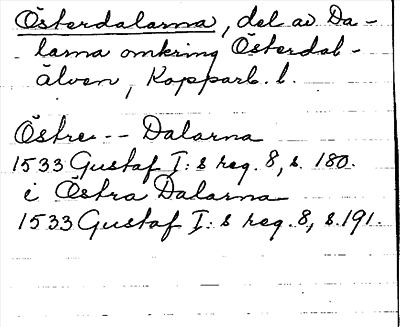 Österdalarna, del av Da-
larna omkring Österdal-
älven, Kopparb. l.
Östre -- Dalarna
1533 Gustaf I:s reg. 8, s. 180.
i Östra Dalarna
1533 Gustaf I:s reg. 8, s. 191.